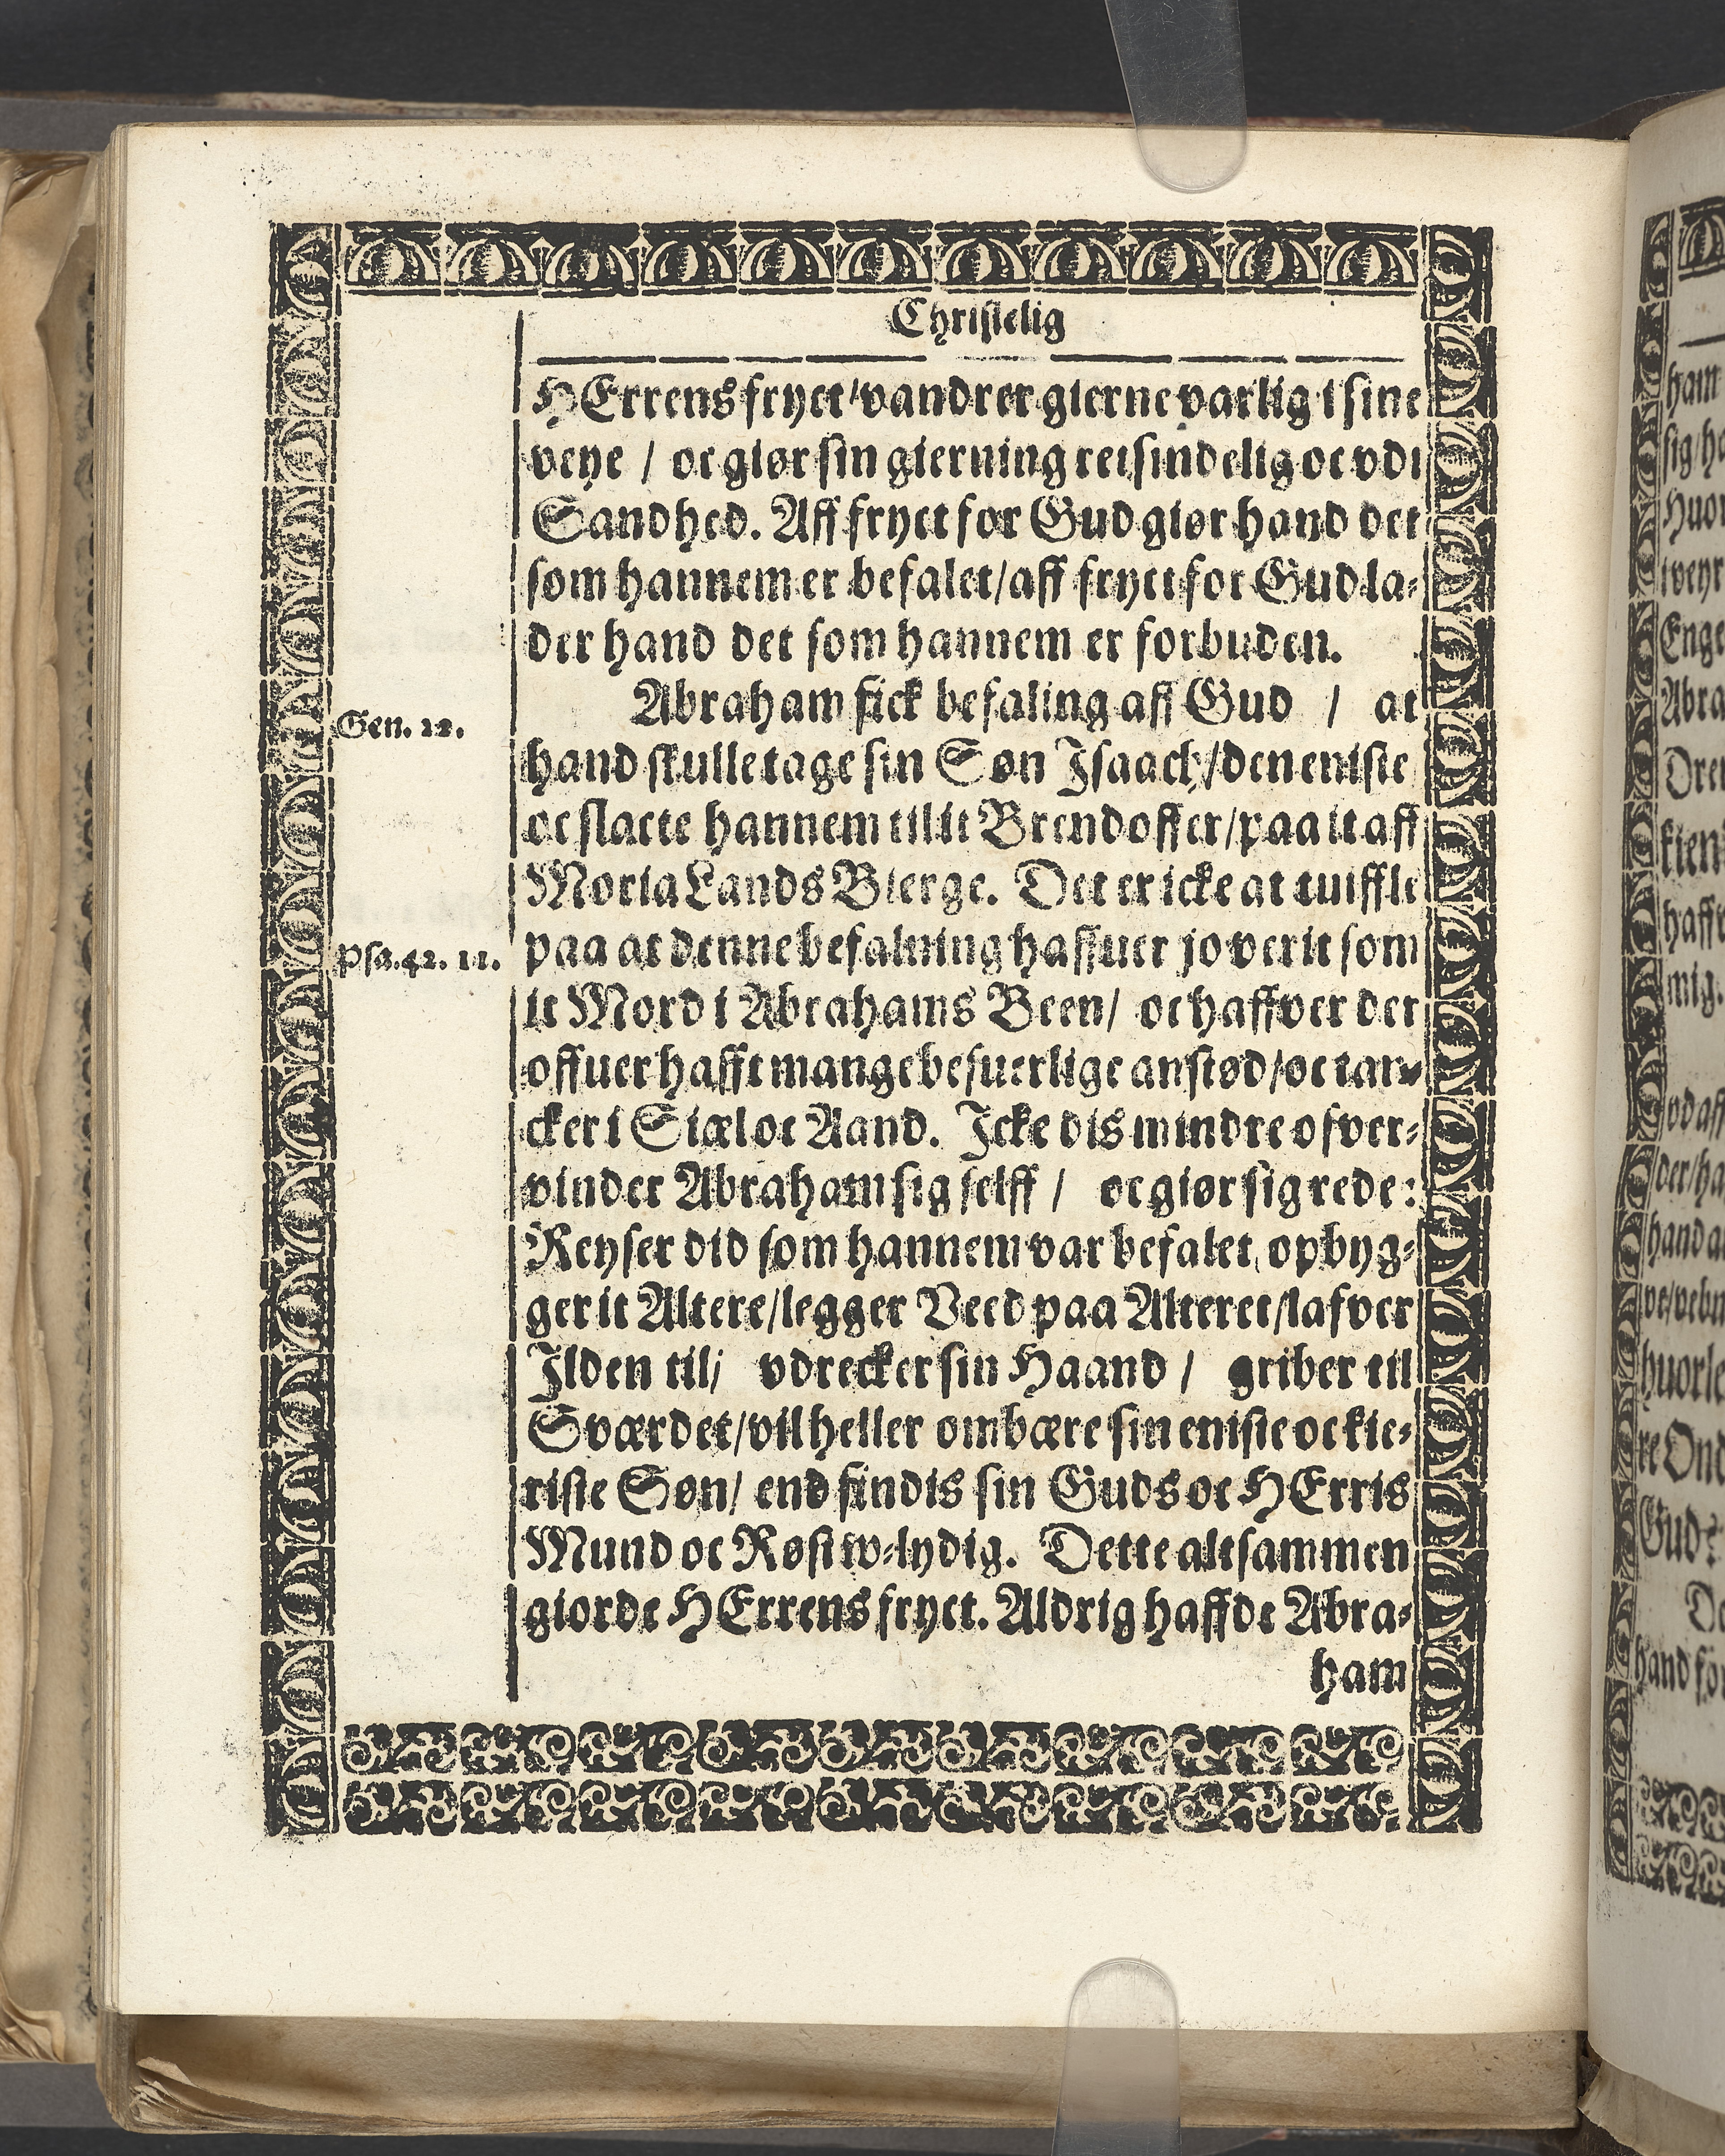 Christelig
HErrens fryct/vandrer gierne varlig i sine
veye / oc giør sin gierning retsindelig oc vdi
Sandhed. Aff fryct for Gud giør hand det
som hannem er befalet/aff fryct for Gud la⸗
der hand det som hannem er forbuden.
Abraham fick befaling aff Gud / at
Gen. 22.
hand skulle tage sin Søn Isaach/den eniste
oc slacte hannem til it Brendoffer/paa it aff
Moria Lands Bierge. Det er icke at tuiffle
paa at denne befalning haffuer jo verit som
Psa. 42. 11.
it Mord i Abrahams Been/ oc haffver der
offuer hafft mange besuerlige anstød/oc tan⸗
cker i Siæl oc Aand. Icke dis mindre ofver⸗
vinder Abraham sig selff / oc giør sig rede:
Reyser did som hannem var befalet, opbyg⸗
ger it Altere/legger Veed paa Alteret/lafver
Ilden til/ vdrecker sin Haand / griber til
Sværdet/vil heller ombære sin eniste oc kie⸗
riste Søn/ end findis sin Guds oc HErris
Mund oc Røst w⸗lydig. Dette altsammen
giorde HErrens fryct. Aldrig haffde Abra⸗
ham